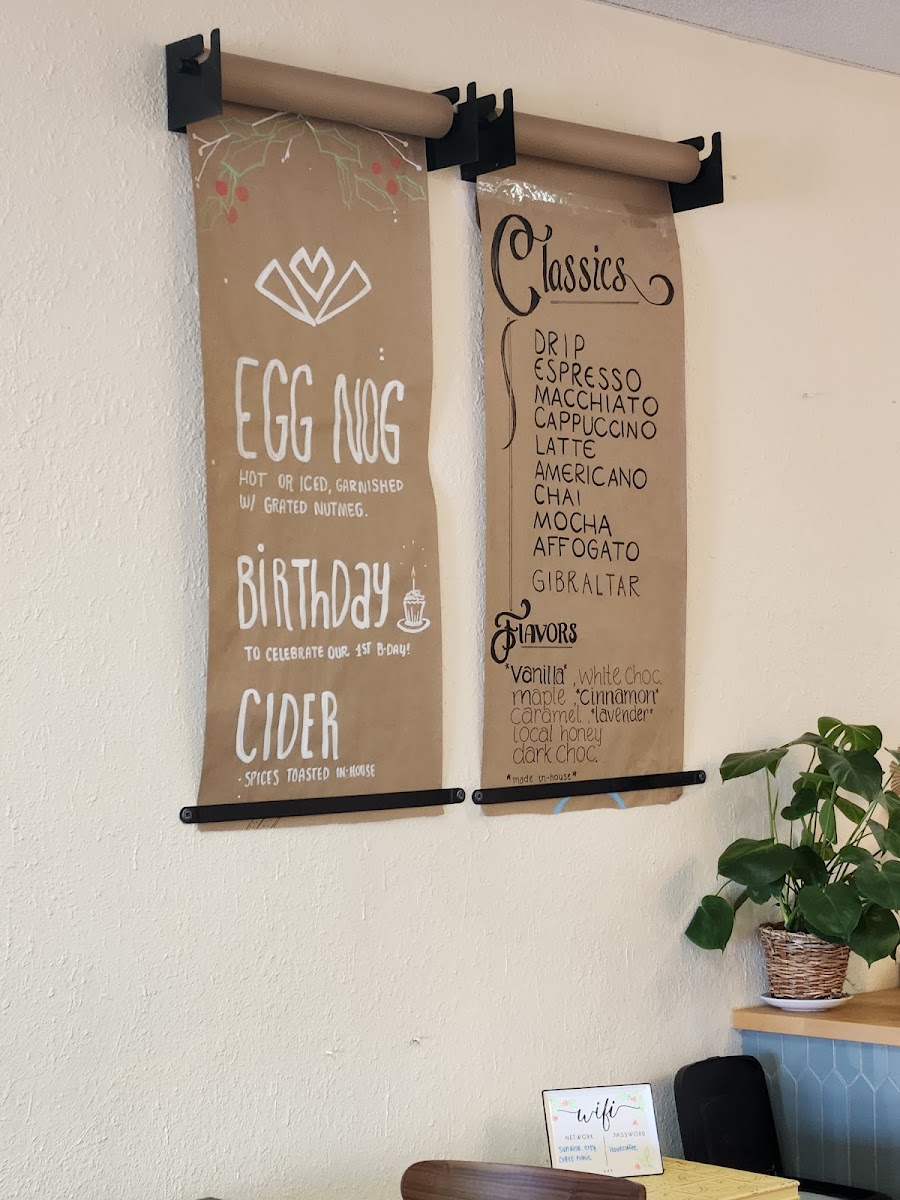 EGG NOG
HOT OR ICED, GARNISHED
W/ GRATED NUTMEG.
BiRThDay
TO CELEBRATE OUR 1ST B-DAY!
CIDER
- SPICES TOASTED IN-HOUSE
Classics
DRIP
ESPRESSO
MACCHIATO
CAPPUCCINO
LATTE
AMERICANO
CHAI
MOCHA
AFFOGATO
GIBRALTAR
FLAVORS
*Vanilla*, white choc.
maple, *cinnamon*
caramel, *lavender*
local honey
dark choc.
*made in-house*
wifi
NETWORK
PASSWORD